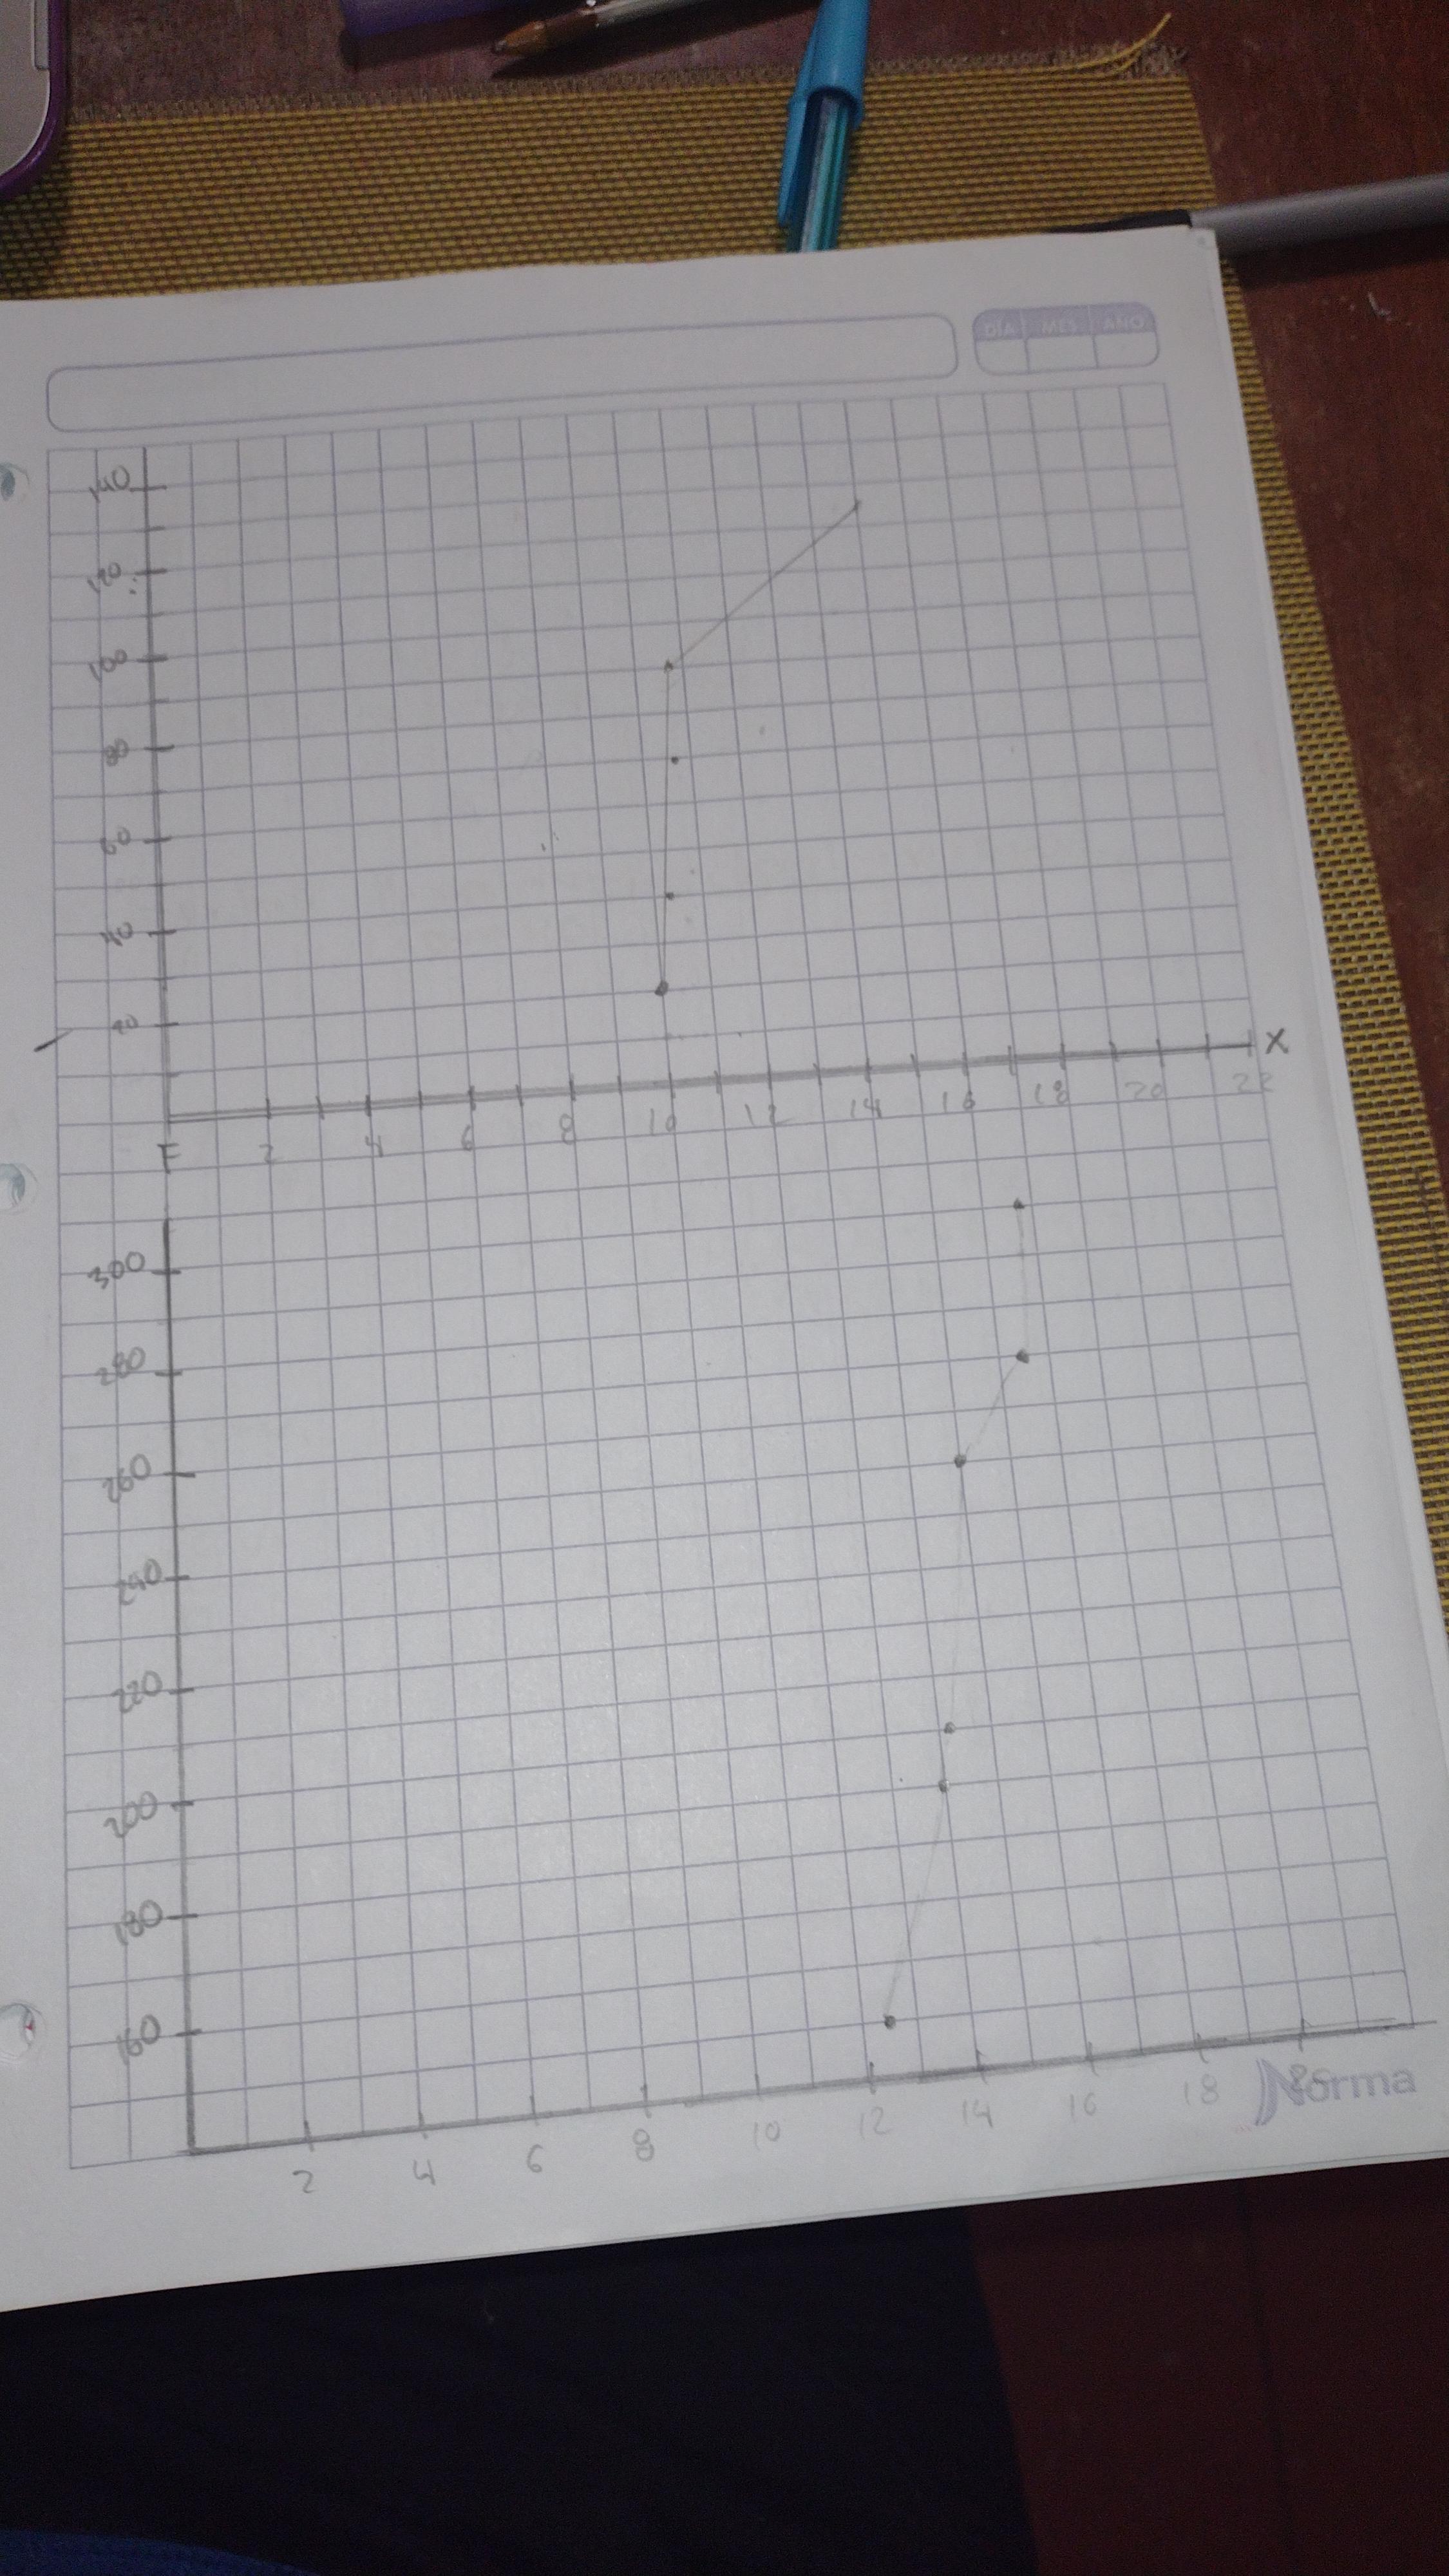 DÍA MES AÑO
140
120
100
80
60
40
20
X
F 2 4 6 8 10 12 14 16 18 20 22
300
280
260
240
220
200
180
160
2 4 6 8 10 12 14 16 18
Norma